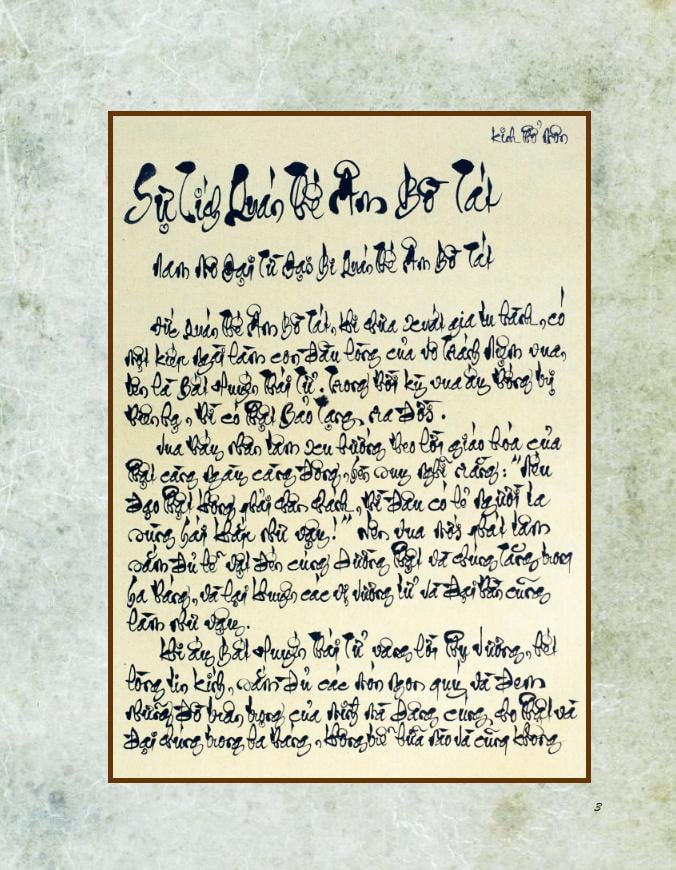 Kinh Phổ Môn
Sự Tích Quán Thế Âm Bồ Tát
Nam Mô Đại Từ Đại Bi Quán Thế Âm Bồ Tát
Đức Quán Thế Âm Bồ Tát, khi chưa xuất gia tu hành, có
một kiếp Ngài làm con đầu lòng của vô Tránh Niệm vua,
tên là Bất Huyến Thái Tử. Trong thời kỳ vua ấy thống trị
thiên hạ, thì có Phật Bảo Tạng, ra đời.
Vua thấy nhân tâm xu hướng theo lời giáo hóa của
Phật càng ngày càng đông, bèn suy nghĩ rằng: "Nếu
đạo Phật không phải chân chánh, thì đâu có lẽ người ta
sùng bái khắp như vậy!" Nên vua mới phát tâm
sắm đủ lễ vật đến cúng dường Phật và chúng Tăng trong
ba tháng, và lại khuyên các vị vương tử và đại thần cũng
làm như vậy.
Khi ấy Bất Huyến Thái Tử vâng lời Phụ Vương, hết
lòng tin kính, sắm đủ các món ngon quý và đem
những đồ trân trọng của mình mà dâng cúng cho Phật và
đại chúng trong ba tháng, không trễ bữa nào và cũng không
3